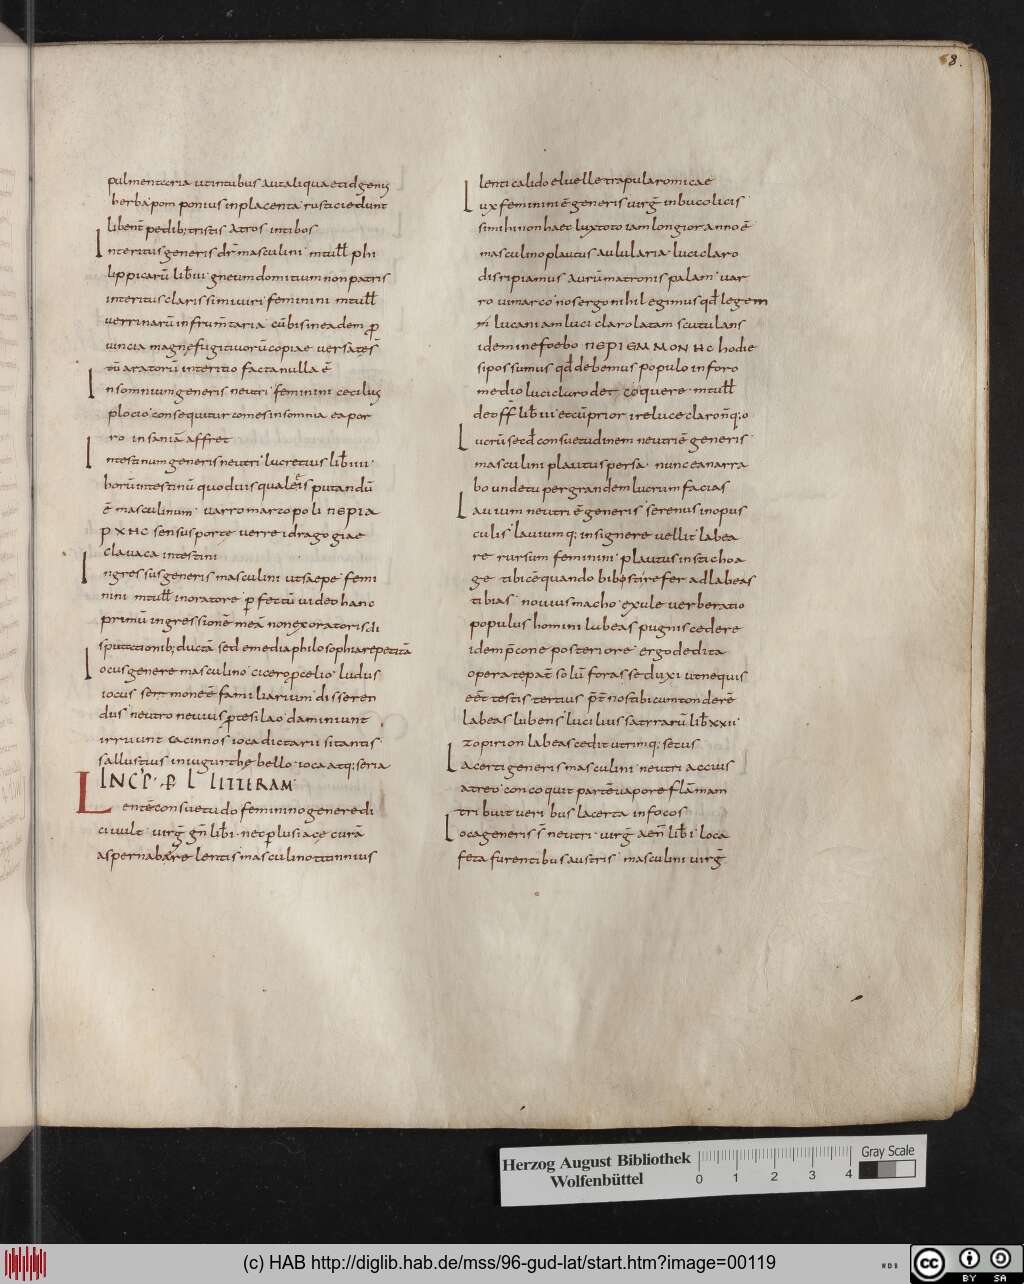 68.
pulmentaria ut intubus aut aliqua etid gen;
herba· pomponius in placenta· rustici edunt
libent̄ pedib; tristis atros intibos
Interitus generis dr̄ masculini· m tull̄ phi
lippicarū lib̄ iii· gneum domitium non patris
interitus clarissimi uiri· feminini· m tull̄
uerrinarū in frum̄taria· cū bis in eadem ꝓ
uincia magnę fugitiuorū copiae uersatęs̄
tū aratorū interitio facta nulla ē
Insomnium generis neutri· feminini cecilius
plocio· consequitur comes insomnia ea por
ro insaniā affret
Intestinum generis neutri· lucretius lib̄ iiii·
horū intestinū quoduis quale eis putandū
ē masculinum· uarro marcopoli περια
ρχης sensus porte uerre idragogiae
clauaca intestini
Ingressus generis masculini ut saepe· femi
nini· m tull̄ in oratore ꝑfectū uideo hanc
primū ingressionē meā non ex oratoris di
sputationib; ductā sed e media philosophia repetitā
Iocus genere masculino· cicero ꝓ celio· ludus
iocus sermone ē familiarium disseren
dus· neutro neuius protesilao· daminiunt
irruunt cacinnos ioca dictarii sitantis·
sallustius in iugurthę bello· ioca atq; seria
INCP̄· P L LITTERAM·
Lentē consuetudo feminino genere di
ci uult· uirg̅ gn̄ lib̄ i· nec plusiacę curā
aspernabare lentis· masculino titinnius
lenti calido eluelle trapula romicae
Lux feminini ē generis· uirg̅ in bucolicis·
si mihi non haec lux toto iam longior anno ē
masculino plautus aulularia· luci claro
disripiamus aurū matronis palam· uar
ro uimarco· nos ergo nihil egimus qd̄ legem
lucaniam luci claro latam scutulans
idem in efoebo περι εμμονης hodie
si possumus qd̄ debemus populo in foro
medio luci claro det coquere· m tull̄
de off̄ lib̄ iii· et cū prior ire luce claro n̄ q; o
Lucrū secd̄ consuetudinem neutri ē generis·
masculini plautus persa· nunc ea narra
bo unde tu pergrandem lucrum facias
Lauium neutri ē generis· serenus in opus
culis· lauiumq; insignere uellit· labea
re rursum feminini· plautus insticho a
ge tibicē quando bibisti refer ad labeas
tibias· nouius macho· exule uerberatio
populus homini lubeas pugnis cedere
idem p̄cone posteriore· ergo dedita
opera tepat̄ solū foras seduxi ut nequis
eēt testis tertius p̄t nos tibi cum tonderē
labeas lubens· lucilius satirarū lib̄ xxii·
zopirion labeas cedit utrimq; secus
Lacerti generis masculini· neutri accius
atreo· concoquit partē uapore flāmam
tribuit ueribus lacerta in focos
Loca generis s̄ neutri· uirg̅ aen̄ lib̄ i· loca
feta furentibus austris· masculini uirg̅
Herzog August Bibliothek
Wolfenbüttel
0 1 2 3 4
Gray Scale
(c) HAB http://diglib.hab.de/mss/96-gud-lat/start.htm?image=00119
WDB
cc BY SA